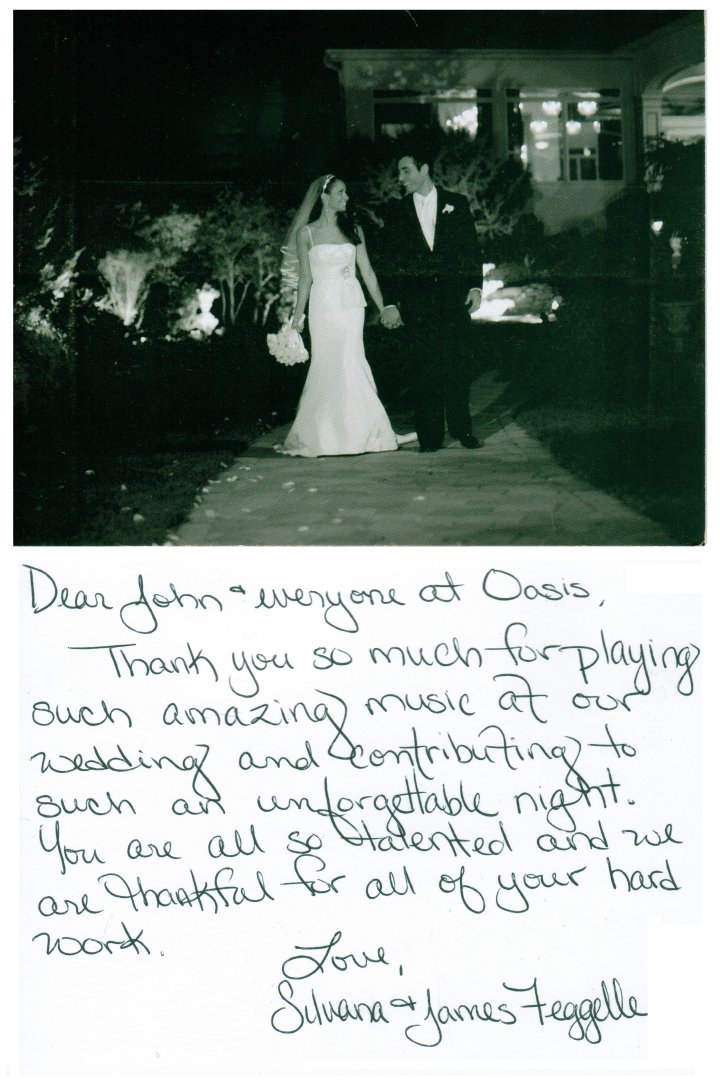 Dear John & everyone at Oasis,
Thank you so much for playing
such amazing music at our
wedding and contributing to
such an unforgettable night.
You are all so talented and we
are thankful for all of your hard
work.
Love,
Silvana & James Feggelle